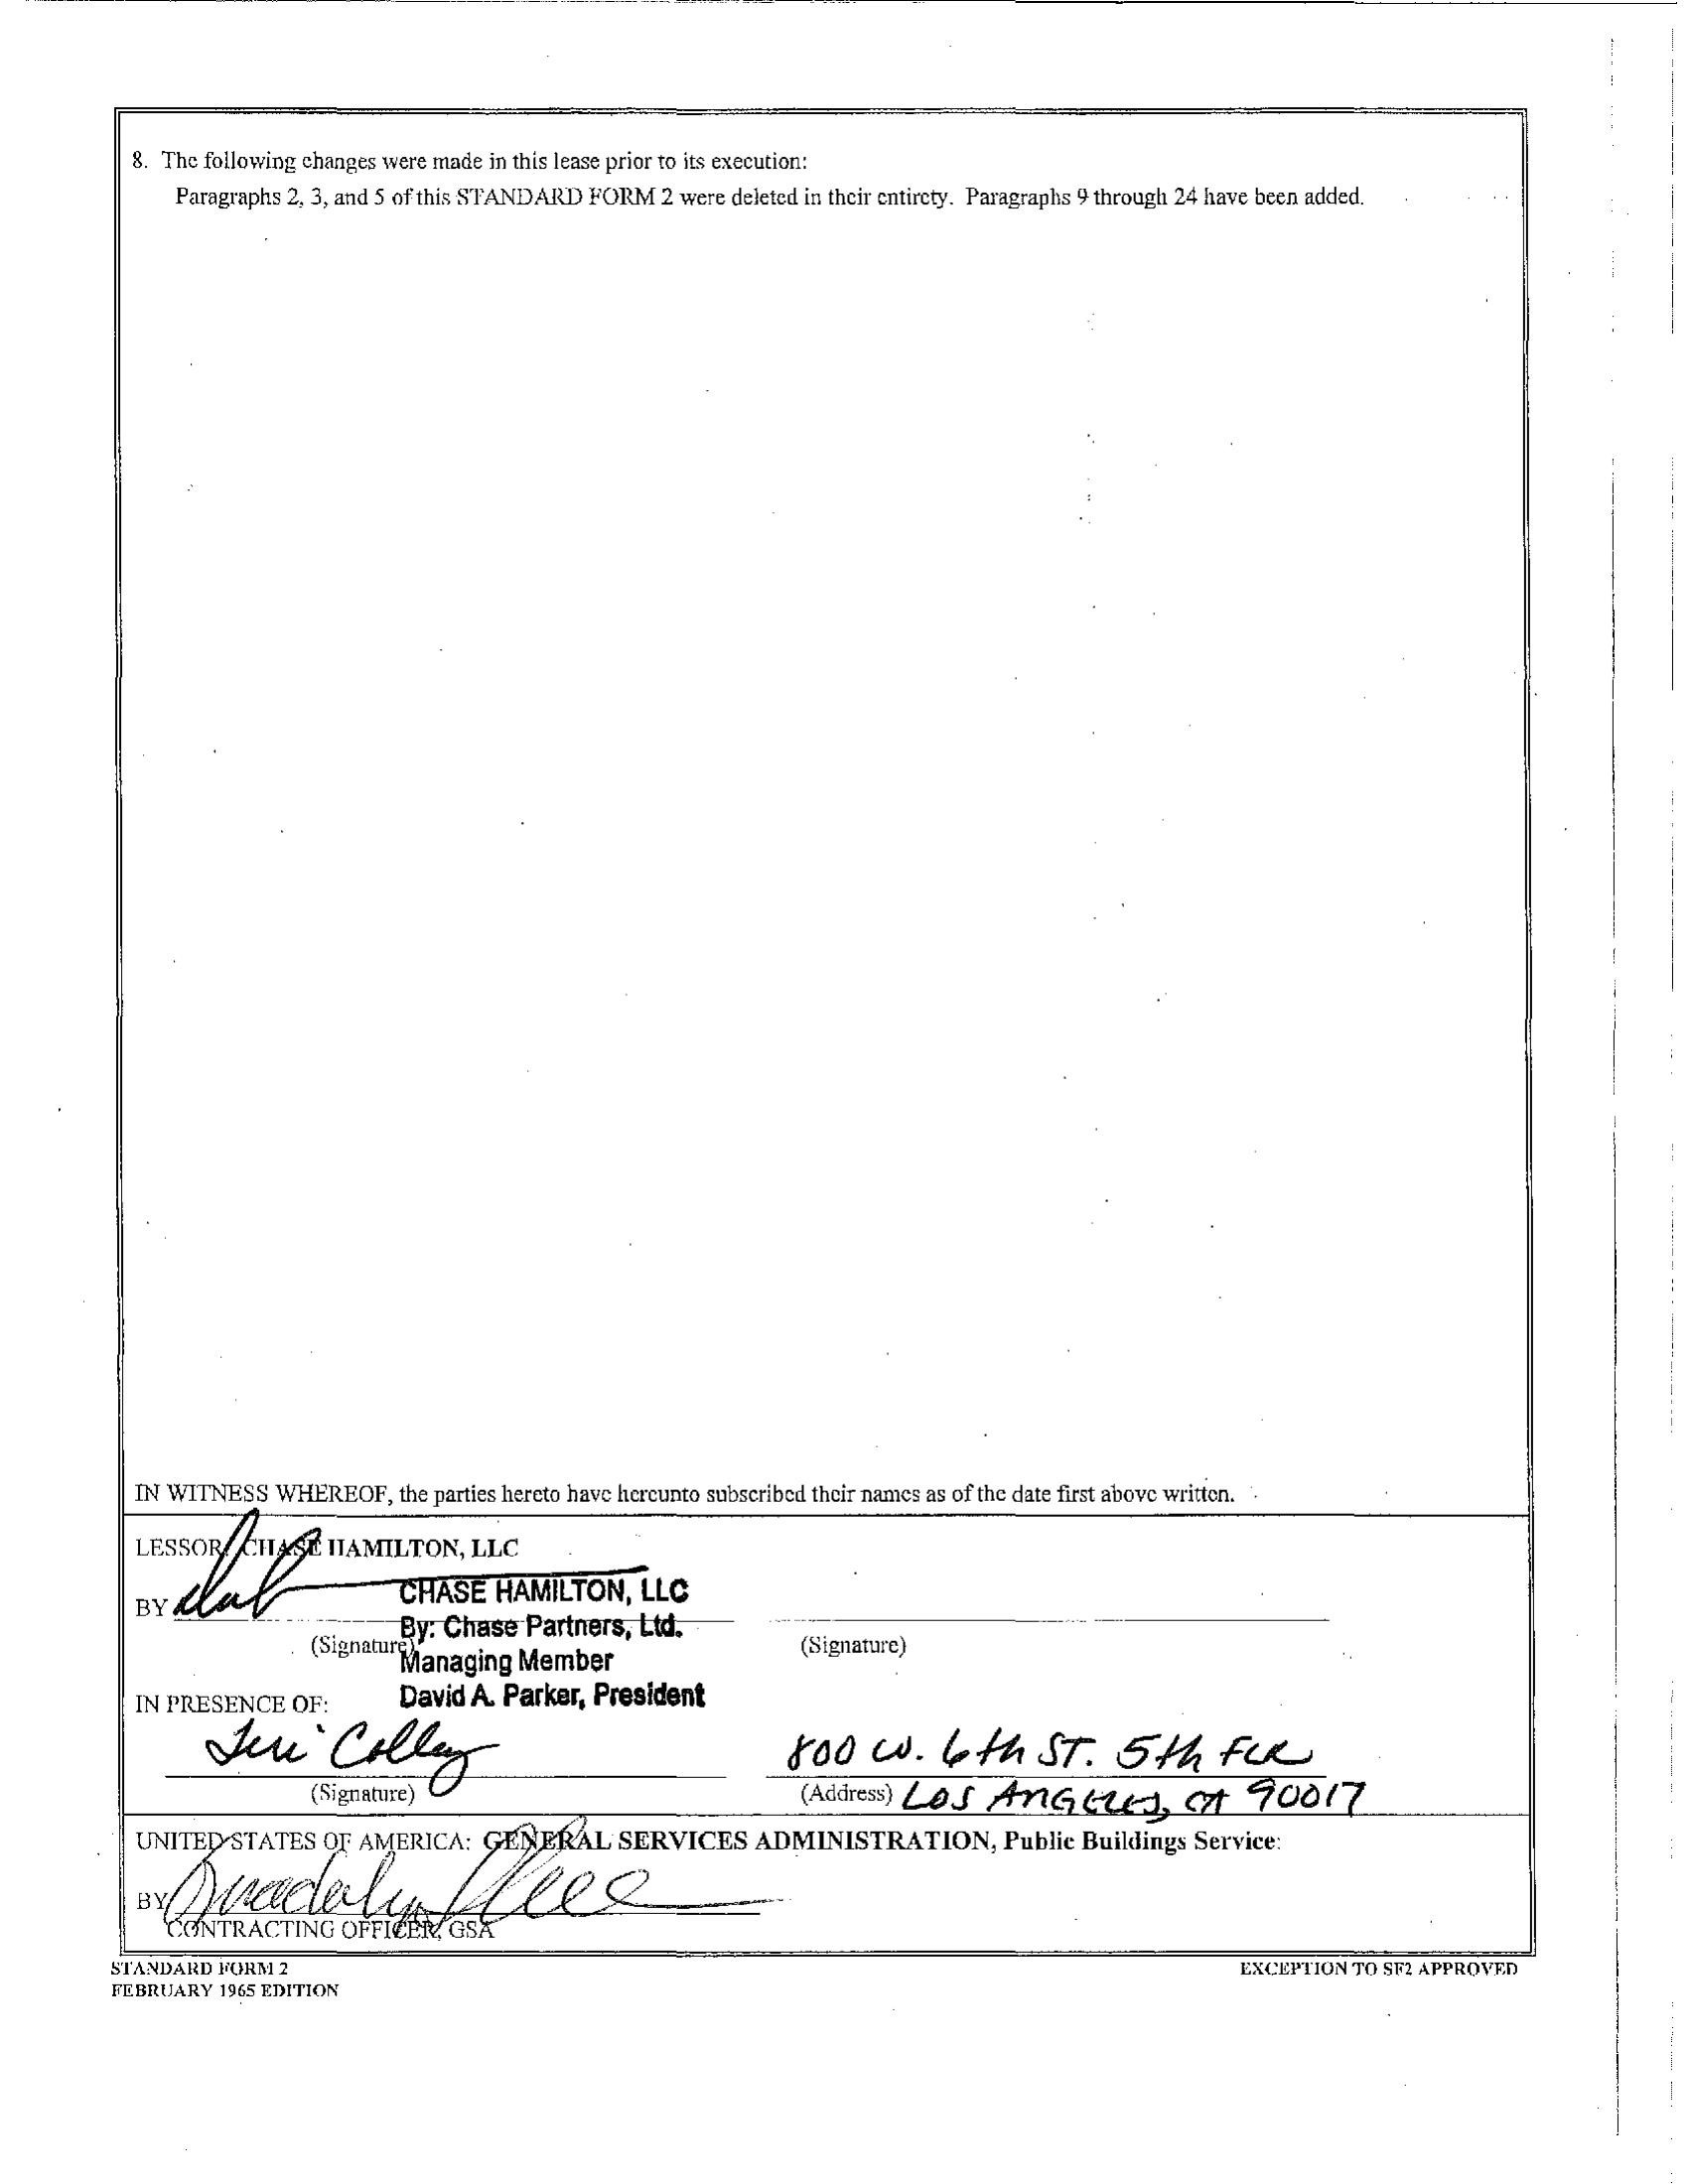 8. The following changes were made in this lease prior to its execution:
Paragraphs 2, 3, and 5 of this STANDARD FORM 2 were deleted in their entirety. Paragraphs 9 through 24 have been added.
IN WITNESS WHEREOF, the parties hereto have hereunto subscribed their names as of the date first above written.
LESSOR: CHASE HAMILTON, LLC
BY
CHASE HAMILTON, LLC
By: Chase Partners, Ltd.
(Signature)
Managing Member
David A. Parker, President
(Signature)
IN PRESENCE OF:
Teri Colley
(Signature)
800 W. 6th ST. 5th FLR
(Address) LOS ANGELES, CA 90017
UNITED STATES OF AMERICA: GENERAL SERVICES ADMINISTRATION, Public Buildings Service:
BY
CONTRACTING OFFICER, GSA
STANDARD FORM 2
FEBRUARY 1965 EDITION
EXCEPTION TO SF2 APPROVED